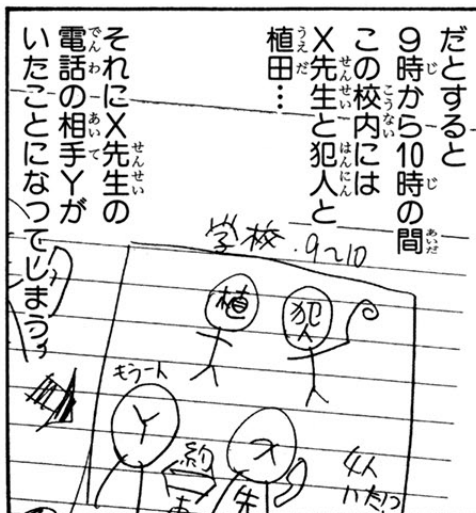 だとすると
9時から10時の間
この校内には
X先生と犯人と
植田…
それにX先生の
電話の相手Yが
いたことになってしまうぅ
学校・9〜10
植
犯人
もう一人
Y
X
約
先
4人
いた!?